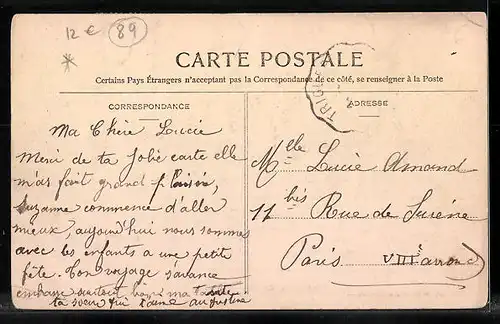 12 € 89
*
CARTE POSTALE
Certains Pays Étrangers n'acceptant pas la Correspondance de ce côté, se renseigner à la Poste
CORRESPONDANCE
Ma Chère Lucie
Merci de ta Jolie carte elle
m'as fait grand plaisir,
Suzanne commence d'aller
mieux, aujourd'hui nous sommes
avec les enfants a une petite
fête. Ton voyage savance
embrasse surtout ma
ta soeur qui t'aime augustine
TRIGUE
ADRESSE
Melle Lucie Amond
11 bis Rue de Suréne
Paris VIIIe arrond